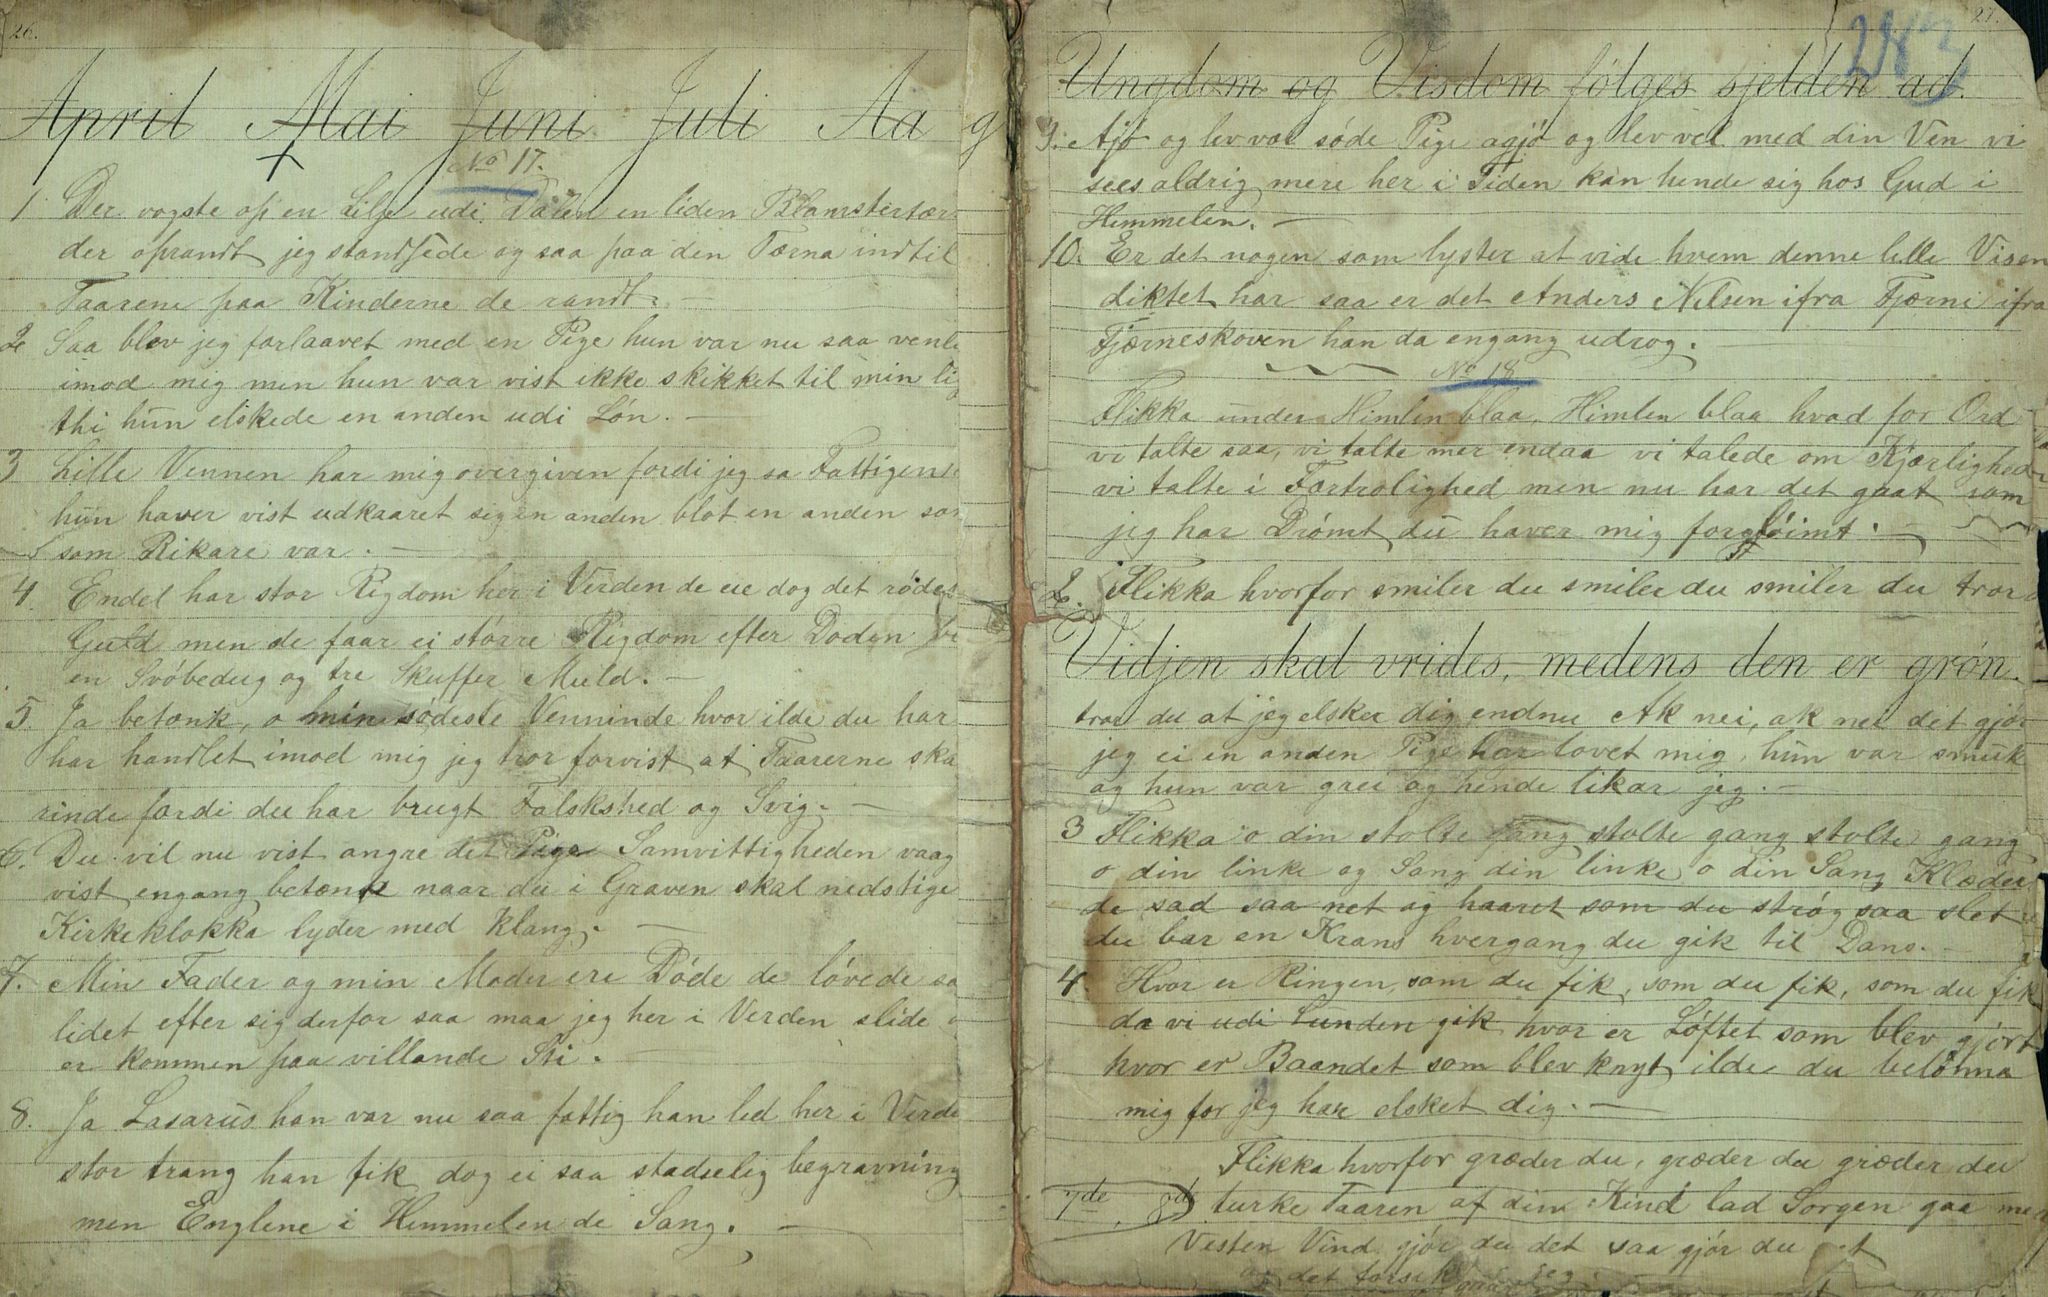 26.
April Mai Juni Juli Aa g
No 17.
1 Der vogste op en Lilje udi Dalen en liden Blomstertær
der oprandt jeg standsede og saa paa den Tærna indtil
Taarene paa Kinderne de randt. —
2 Saa blev jeg forlaavet med en Pige hun var nu saa venli
imod mig men hun var vist ikke skikket til min lig
thi hun elskede en anden udi Løn. —
3 Lille Vennen har mig overgiven fordi jeg sa Fattigen
hun haver vist udkaaret sig en anden blot en anden som
som Rikare var. —
4. Endel har stor Rigdom her i Verden de eie dog det rødes
Guld men de faar ei større Rigdom efter Doden
en Svøbedug og tre Skuffer Muld. —
5. Ja betænk, o min sødeste Venninde hvor ilde du har
har handlet imod mig jeg tror forvist at Taarerne ska
rinde fordi du har brugt Falskshed og Svig. —
6. Du vil nu vist angre det Pige Samvittigheden vaag
vist engang betænk naar du i Graven skal nedstige
Kirkeklokka lyder med klang. —
7. Min Fader og min Moder ere Døde de løvede sa
lidet efter sig derfor saa maa jeg her i Verden slide
er kommen paa villande Sti. —
8. Ja Lasarus han var nu saa fattig han led her i Verde
stor trang han fik dog ei saa stadselig begravning
men Englene i Himmelen de Sang. —
27.
243
Ungdom og Visdom følges sjelden ad.
9. Ajø og lev vel søde Pige agjø og lev vel med din Ven vi
sees aldrig mere her i Tiden kan hende sig hos Gud i
Himmelen. —
10. Er det nogen som lyster at vide hvem denne lille Visen
diktet har saa er det Anders Nilsen ifra Fjærni ifra
Fjærneskoven han da engang udrog. —
No 18
Flikka under Himlen blaa, Himlen blaa hvad for Ord
vi talte saa, vi talte mer endaa vi talede om Kjærlighed
vi talte i Fortrolighed men nu har det gaat som
jeg har Drømt du haver mig forgløimt. —
2. Flikka hvorfor smiler du smiler du smiler du tror
Vidjen skal vrides, medens den er grøn.
tror du at jeg elsker dig endnu Ak nei, ak nei det gjør
jeg ei en anden Pige har lovet mig, hun var smuk
og hun var grei og hende likar jeg. —
3 Flikka o din stolte gang stolte gang stolte gang
o din linke og Sang din linke o din Sang Klæder
de sad saa net og haaret som du strøg saa slet
du bar en Krans hvergang du gik til Dans. —
4. Hvor er Ringen, som du fik, som du fik, som du fik
da vi udi Lunden gik hvor er Løftet som blev gjort
hvor er Baandet som blev knyt ilde du beløhna
mig for jeg har elsket dig. —
Flikka hvorfor græder du, græder du græder du
7de 8d turke Taaren af din Kind lad Sorgen gaa med
Vesten Vind gjør du det saa gjør du et
og det forsik jeg.